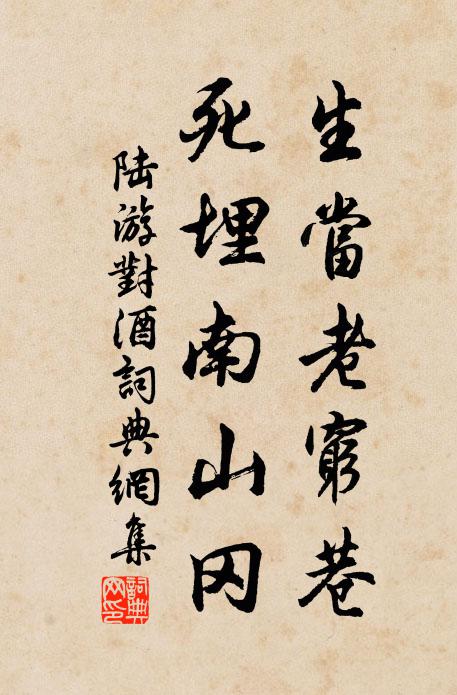 生當老窮巷
死埋南山冈
陸游對酒詞典網集
詞典網印